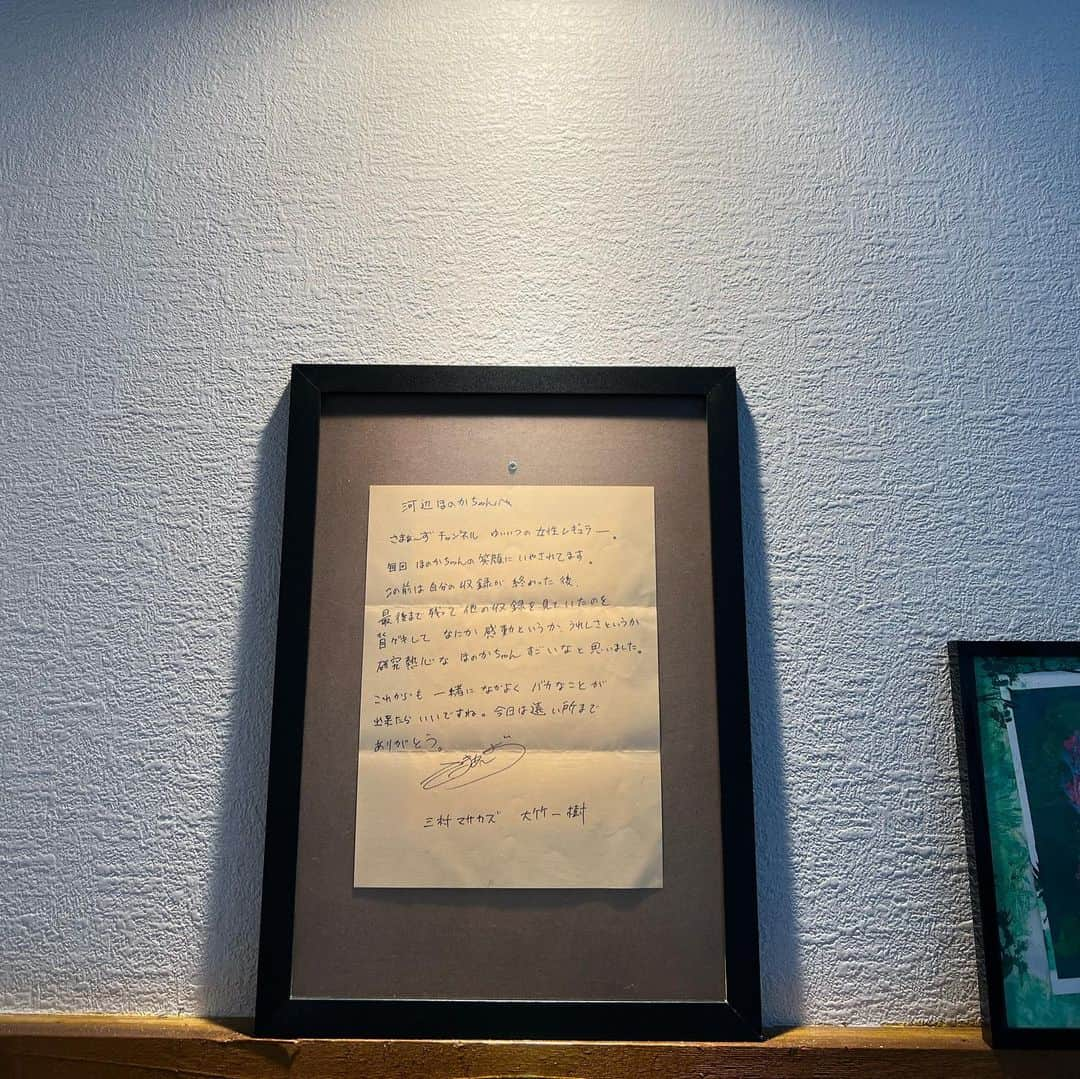 河辺ほのかちゃんへ
さまぁ〜ずチャンネル ゆいいつの女性レギュラー。
毎回 ほのかちゃんの笑顔にいやされてます。
この前は自分の収録が終わった後、
最後まで残って他の収録を見ていたのを
目ゲキして なにか感動というか、うれしさというか
研究熱心な ほのかちゃんすごいなと思いました。
これからも 一緒に なかよく バカなことが
出来たらいいですね。今日は遠い所まで
ありがとう。
さまぁ〜ず
三村マサカズ 大竹一樹